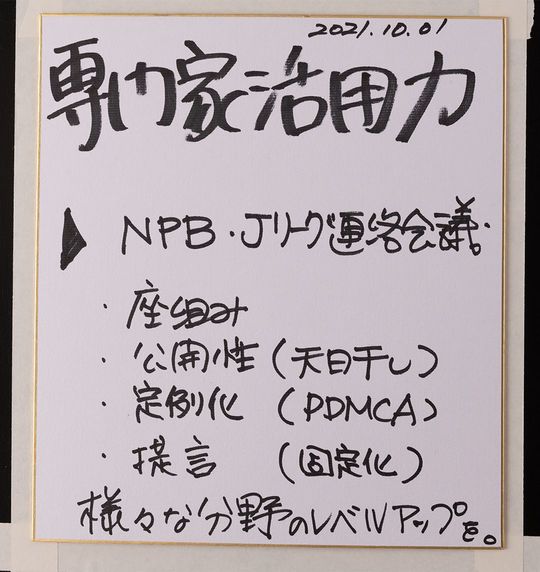 2021.10.01
専門家活用力
▶ NPB・Jリーグ連絡会議.
・座組み
・公開性（天日干し）
・定例化（PDMCA）
・提言（固定化）
様々な分野のレベルアップを。